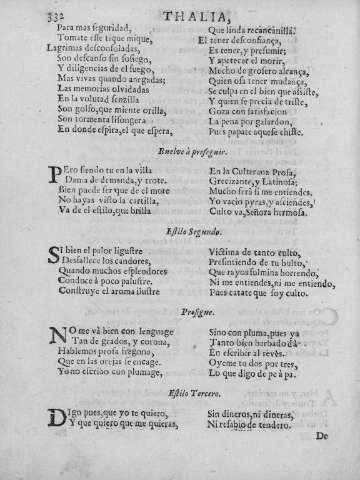 332 THALIA,
Para mas seguridad,
Tomate esse tique mique,
Lagrimas desconsoladas,
Son descanso sin sosiego,
Y diligencias de el fuego,
Mas vivas quando anegadas;
Las memorias olvidadas
En la volutad senzilla
Son golfo, que miente orilla,
Son tormenta lisongera
En donde espira, el que espera,
Que linda recancanilla.
El tener desconfiança,
Es tener, y presumir;
Y apetecer el morir,
Mucho de grosero alcança,
Quien osa tener mudança,
Se culpa en el bien que assiste,
Y quien se precia de triste,
Goza con satisfacion
La pena por galardon,
Pues papate aquese chiste.
Buelve à proseguir.
PEro siendo tu en la villa
Dama de demanda, y trote.
Bien puede ser que de el mote
No hayas visto la cartilla,
Va de el estilo, que brilla
En la Culterana Prosa,
Grecizante, y Latinosa;
Mucho será si me entiendes,
Yo vacio pyras, y asciendes,
Culto va, Señora hermosa.
Estilo Segundo.
SI bien el palor ligustre
Desfallece los candores,
Quando muchos esplendores
Conduce à poco palustre.
Construye el aroma ilustre
Victima de tanto culto,
Presintiendo de tu bulto,
Que rayos fulmina horrendo,
Ni me entiendes, ni me entiendo,
Pues catate que soy culto.
Prosigue.
NO me và bien con lenguage
Tan de grados, y corona,
Hablemos prosa fregona,
Que en las orejas se encage.
Yo no escribo con plumage,
Sino con pluma, pues ya
Tanto bien barbado dà
En escribir al revès.
Oyeme tu dos por tres,
Lo que digo de pe à pa.
Estilo Tercero.
DIgo pues, que yo te quiero,
Y que quiero que me quieras,
Sin dineros, ni dineras,
Ni resabio de tendero.
De